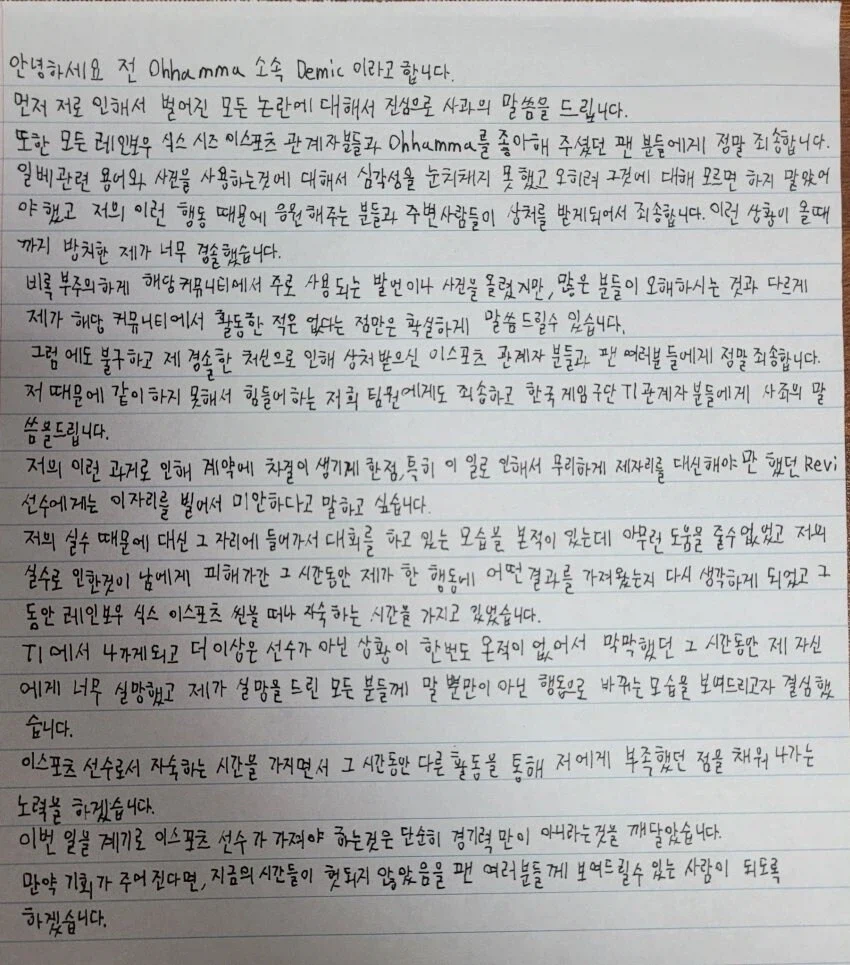 안녕하세요 전 Ohhamma 소속 Demic 이라고 합니다.
먼저 저로 인해서 벌어진 모든 논란에 대해서 진심으로 사과의 말씀을 드립니다.
또한 모든 레인보우 식스 시즈 이스포츠 관계자분들과 Ohhamma를 좋아해 주셨던 팬 분들에게 정말 죄송합니다.
일베관련 용어와 사진을 사용하는것에 대해서 심각성을 눈치채지 못했고 오히려 그것에 대해 모르면 하지 말았어
야 했고 저의 이런 행동 때문에 응원해주는 분들과 주변사람들이 상처를 받게되어서 죄송합니다. 이런 상황이 올때
까지 방치한 제가 너무 경솔했습니다.
비록 부주의하게 해당커뮤니티에서 주로 사용되는 발언이나 사진을 올렸지만, 많은 분들이 오해하시는 것과 다르게
제가 해당 커뮤니티에서 활동한 적은 없다는 점만은 확실하게 말씀드릴수 있습니다.
그럼에도 불구하고 제 경솔한 처신으로 인해 상처받으신 이스포츠 관계자 분들과 팬 여러분들에게 정말 죄송합니다.
저 때문에 같이하지 못해서 힘들어하는 저희 팀원에게도 죄송하고 한국게임구단 T1관계자분들에게 사죄의 말
씀을드립니다.
저의 이런 과거로 인해 계약에 차질이 생기게 한점, 특히 이 일로 인해서 무리하게 제자리를 대신해야만 했던 Revi
선수에게는 이자리를 빌어서 미안하다고 말하고 싶습니다.
저의 실수 때문에 대신 그 자리에 들어가서 대회를 하고 있는 모습을 본적이 있는데 아무런 도움을 줄수없었고 저의
실수로 인한것이 남에게 피해가간 그 시간동안 제가 한 행동에 어떤결과를 가져왔는지 다시 생각하게 되었고 그
동안 레인보우 식스 이스포츠 씬을 떠나 자숙하는 시간을 가지고 있었습니다.
T1에서 나가게되고 더 이상은 선수가 아닌 상황이 한번도 온적이 없어서 막막했던 그 시간동안 제 자신
에게 너무 실망했고 제가 실망을 드린 모든 분들께 말 뿐만이 아닌 행동으로 바뀌는 모습을 보여드리고자 결심했
습니다.
이스포츠 선수로서 자숙하는 시간을 가지면서 그 시간동안 다른 활동을 통해 저에게 부족했던 점을 채워 나가는
노력을 하겠습니다.
이번 일을 계기로 이스포츠 선수가 가져야 하는것은 단순히 경기력 만이 아니라는것을 깨달았습니다.
만약 기회가 주어진다면, 지금의시간들이 헛되지 않았음을 팬 여러분들께 보여드릴수 있는 사람이 되도록
하겠습니다.